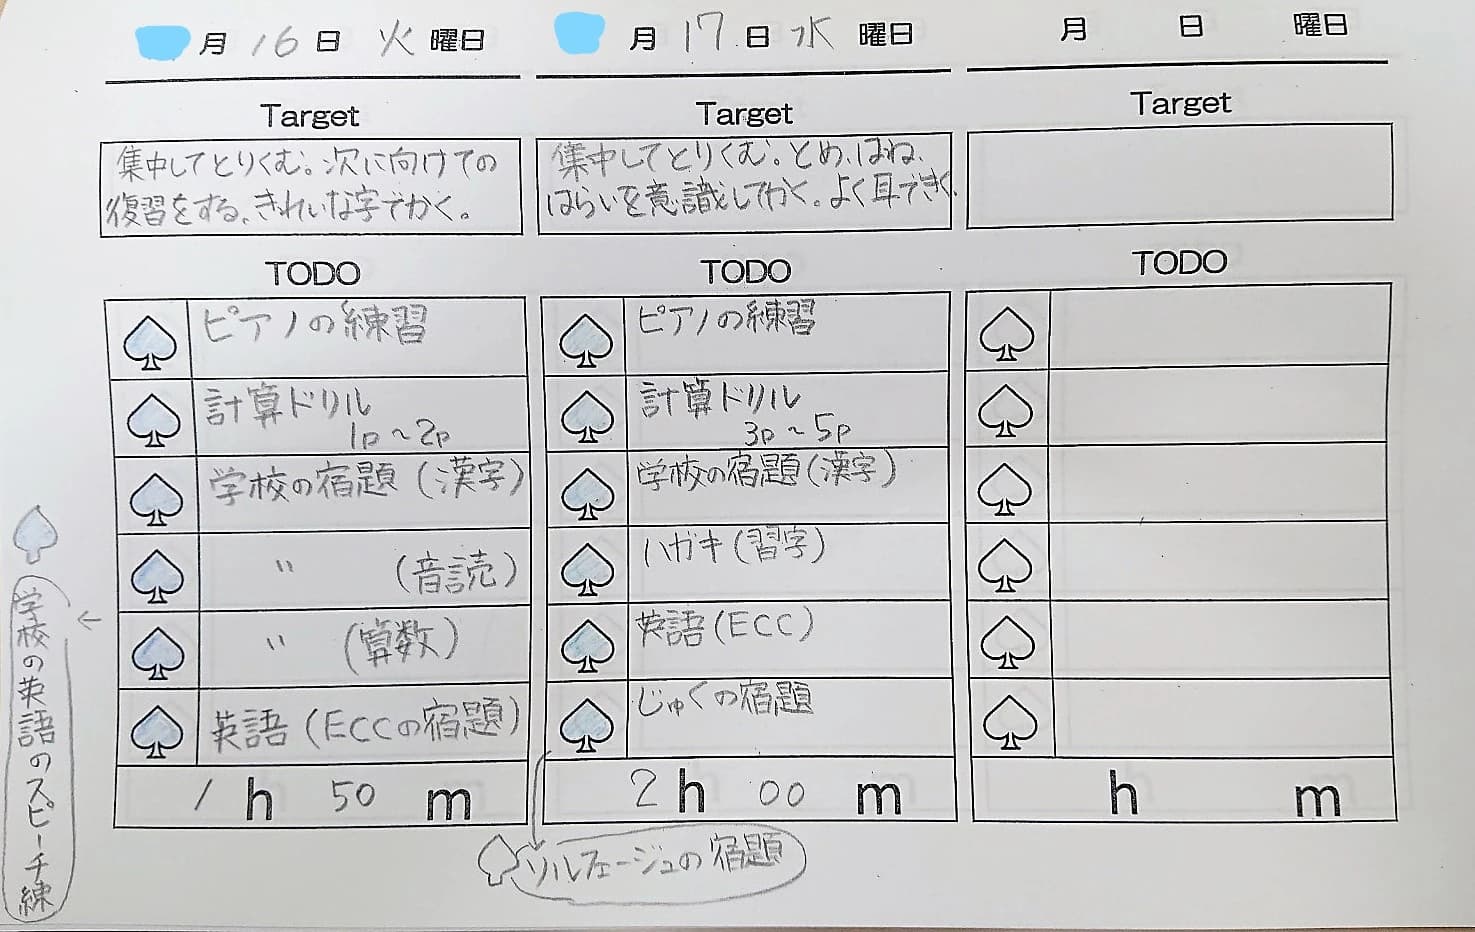 月 16 日 火 曜日
Target
集中してとりくむ。次に向けての
復習をする、きれいな字でかく。
TODO
ピアノの練習
計算ドリル
1p〜2p
学校の宿題(漢字)
〃 (音読)
〃 (算数)
英語(ECCの宿題)
1 h 50 m
学校の英語のスピーチ練
←
月 17 日 水 曜日
Target
集中してとりくむ。とめ、はね、
はらいを意識してかく。よく耳できく、
TODO
ピアノの練習
計算ドリル
3p〜5p
学校の宿題(漢字)
ハガキ(習字)
英語(ECC)
じゅくの宿題
2 h 00 m
ソルフェージュの宿題
月 日 曜日
Target
TODO
h m